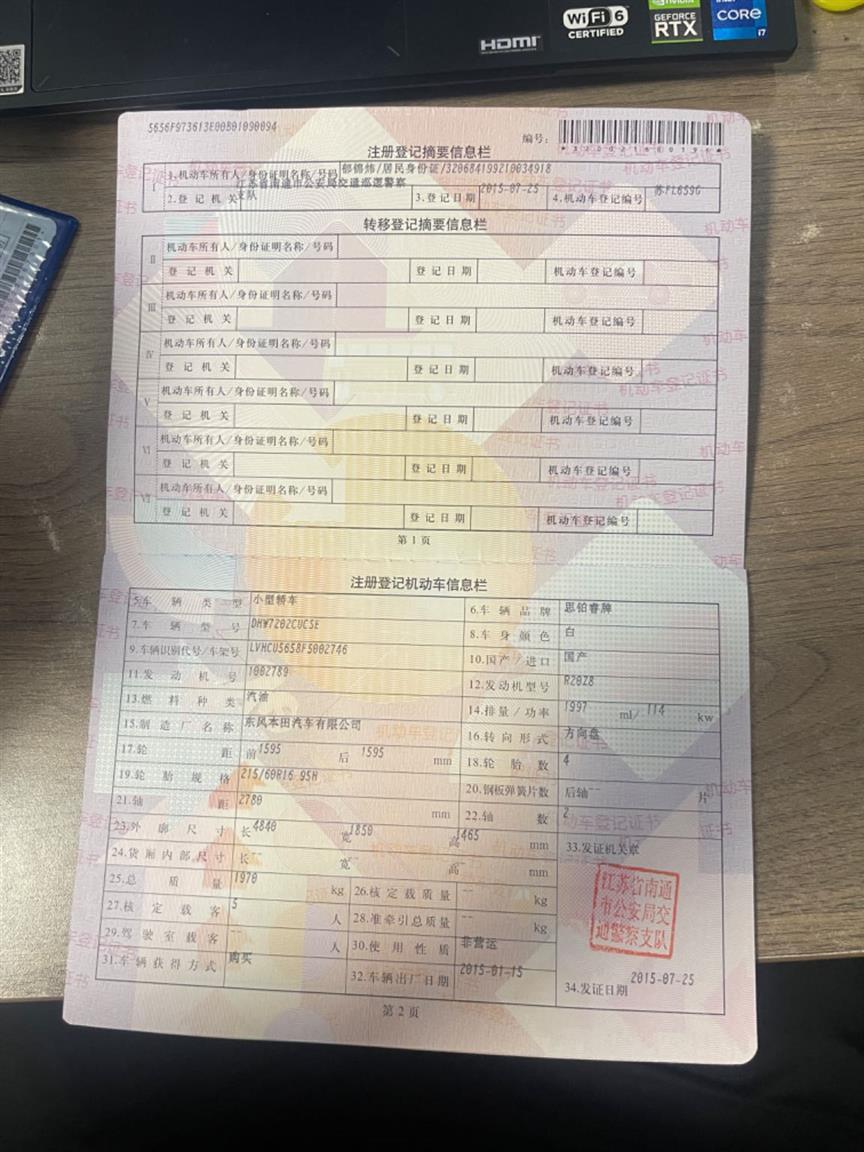 HDMI
WiFi 6
CERTIFIED
NVIDIA
GEFORCE
RTX
intel
CORE
i7
5656F973613E00B01090094
编号：
注册登记摘要信息栏
I
1.机动车所有人/身份证明名称/号码 郁锦炜/居民身份证/320684199210034918
2.登记机关 江苏省南通市公安局交通巡逻警察支队 3.登记日期 2015-07-25 4.机动车登记编号 苏FL6S9G
转移登记摘要信息栏
II 机动车所有人/身份证明名称/号码
登记机关 登记日期 机动车登记编号
III 机动车所有人/身份证明名称/号码
登记机关 登记日期 机动车登记编号
IV 机动车所有人/身份证明名称/号码
登记机关 登记日期 机动车登记编号
V 机动车所有人/身份证明名称/号码
登记机关 登记日期 机动车登记编号
VI 机动车所有人/身份证明名称/号码
登记机关 登记日期 机动车登记编号
VII 机动车所有人/身份证明名称/号码
登记机关 登记日期 机动车登记编号
第1页
注册登记机动车信息栏
5.车辆类型 小型轿车 6.车辆品牌 思铂睿牌
7.车辆型号 DHW7202CUCSE 8.车身颜色 白
9.车辆识别代号/车架号 LVHCU5658F5002746 10.国产/进口 国产
11.发动机号 1002789 12.发动机型号 R20Z8
13.燃料种类 汽油 14.排量/功率 1997 ml/ 114 kw
15.制造厂名称 东风本田汽车有限公司 16.转向形式 方向盘
17.轮距 前 1595 后 1595 mm 18.轮胎数 4
19.轮胎规格 215/60R16 95H 20.钢板弹簧片数 后轴 -- 片
21.轴距 2780 mm 22.轴数 2
23.外廓尺寸 长 4840 宽 1850 高 1465 mm 33.发证机关章
24.货厢内部尺寸 长 -- 宽 -- 高 -- mm
25.总质量 1970 kg 26.核定载质量 -- kg
27.核定载客 5 人 28.准牵引总质量 -- kg
29.驾驶室载客 -- 人 30.使用性质 非营运
31.车辆获得方式 购买 32.车辆出厂日期 2015-01-15 34.发证日期 2015-07-25
江苏省南通
市公安局交
通警察支队
第2页